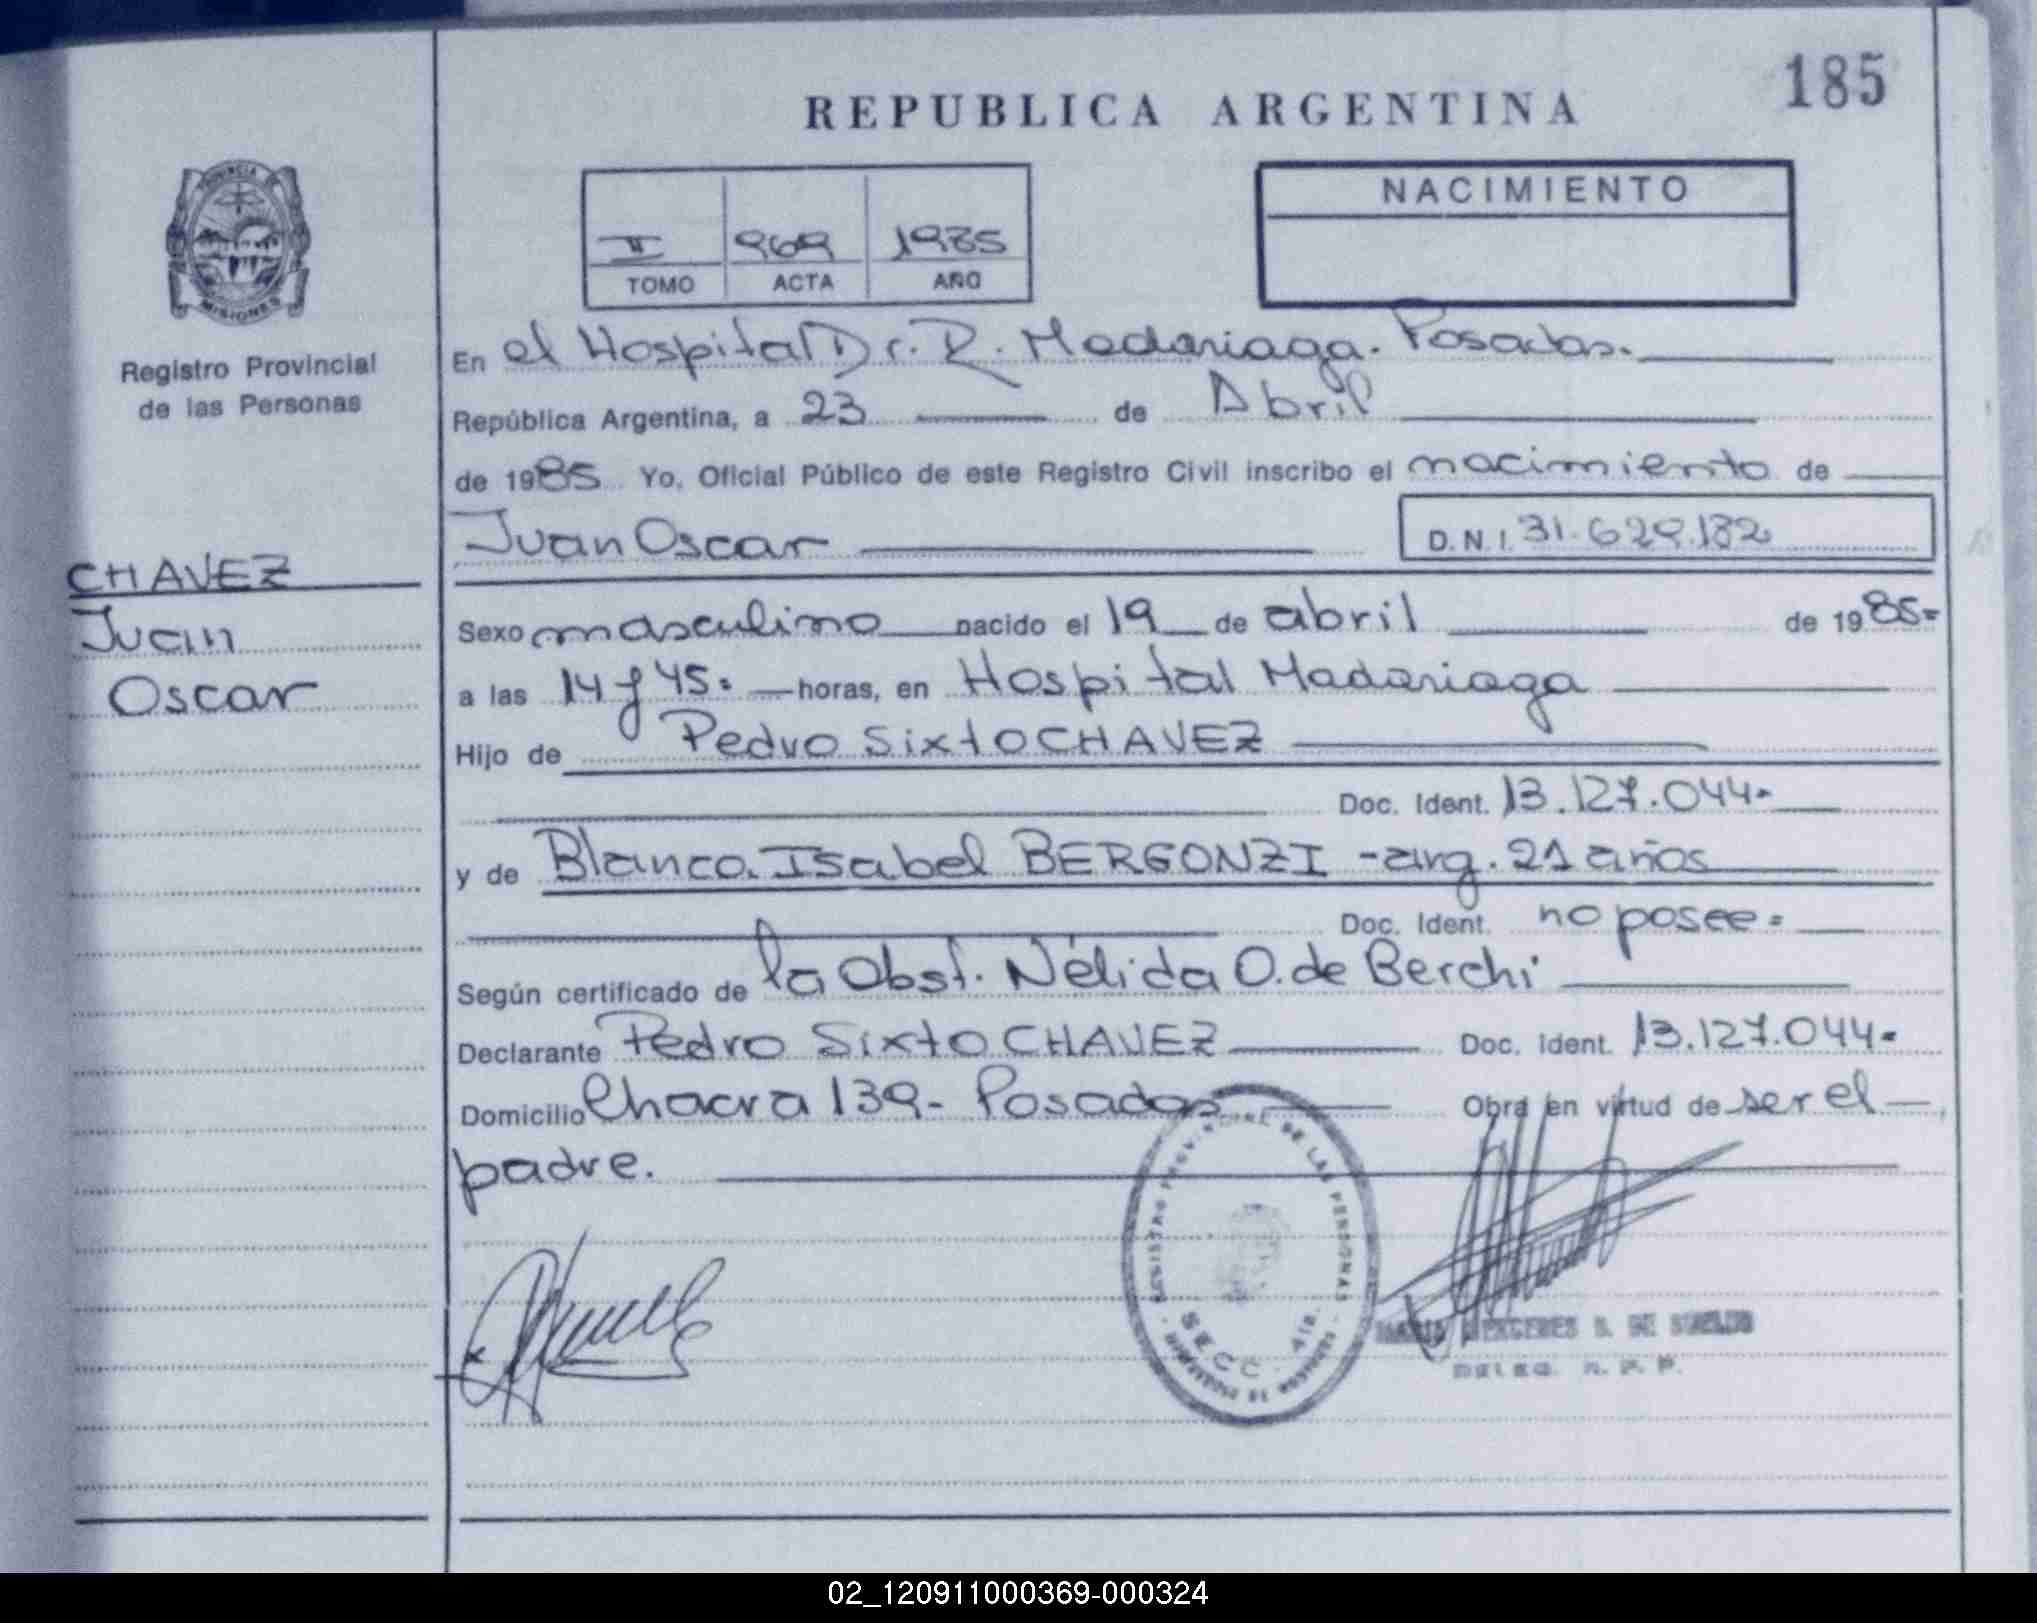 185
REPUBLICA ARGENTINA
PROVINCIA DE
MISIONES
Registro Provincial
de las Personas
NACIMIENTO
II 969 1985
TOMO ACTA AÑO
En el Hospital Dr. R. Madariaga. Posadas.
República Argentina, a 23 de Abril
de 1985 Yo, Oficial Público de este Registro Civil inscribo el nacimiento de
Juan Oscar D.N.I. 31.629.182
CHAVEZ
Juan
Oscar
Sexo masculino nacido el 19 de abril de 1985=
a las 14 y 45= horas, en Hospital Madariaga
Hijo de Pedro Sixto CHAVEZ
Doc. Ident. 13.127.044-
y de Blanca Isabel BERGONZI -arg. 21 años
Doc. Ident. no posee=
Según certificado de la Obst. Nélida O. de Berchi
Declarante Pedro Sixto CHAVEZ Doc. Ident. 13.127.044-
Domicilio Chacra 139- Posadas Obra en virtud de ser el
padre.
REGISTRO PROVINCIAL DE LAS PERSONAS
SECC.
02_120911000369-000324